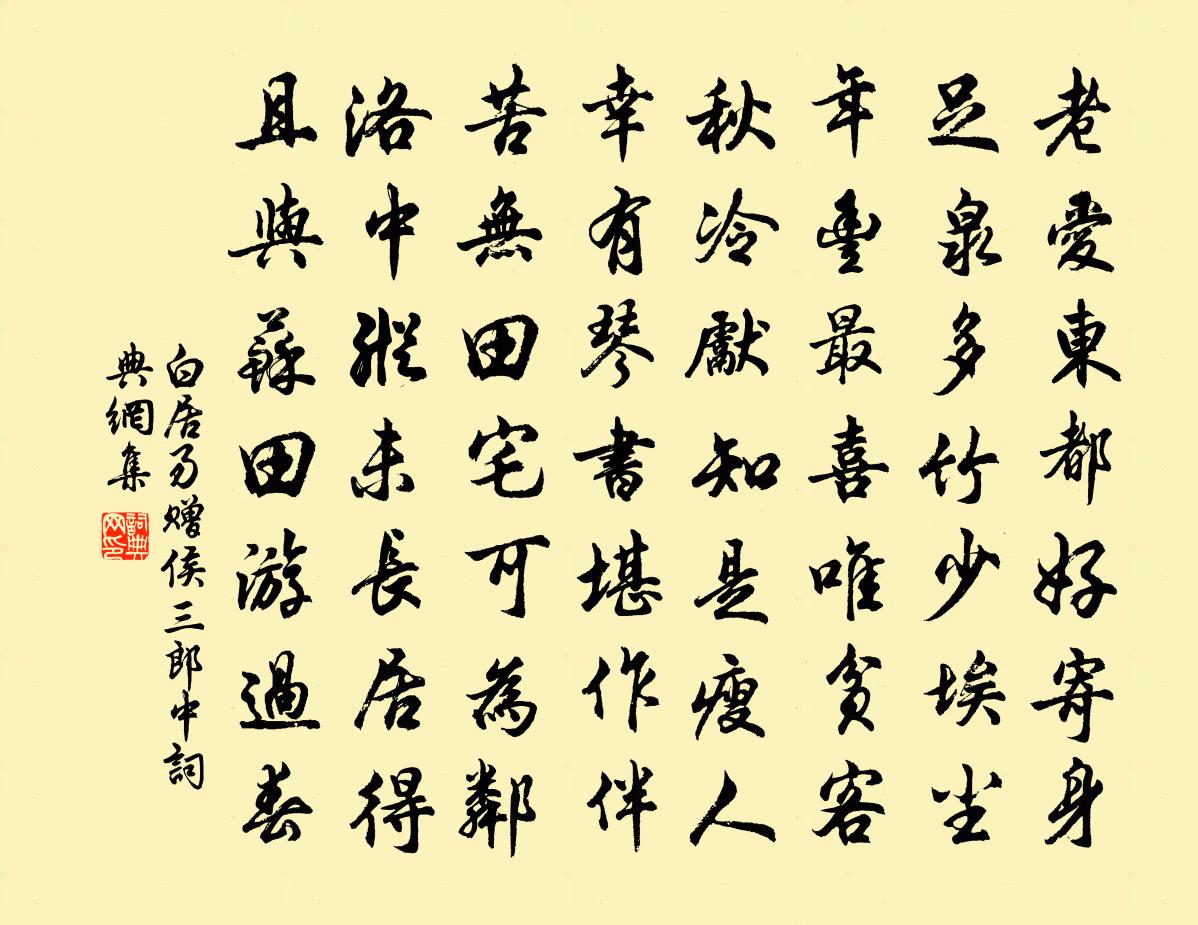 老愛東都好寄身
足泉多竹少埃尘
年豐最喜唯貧客
秋冷獻知是瘦人
幸有琴書堪作伴
苦無田宅可為鄰
洛中縱未長居得
且與蘇田游過春
白居易贈侯三郎中詞
典網集
詞典
网印